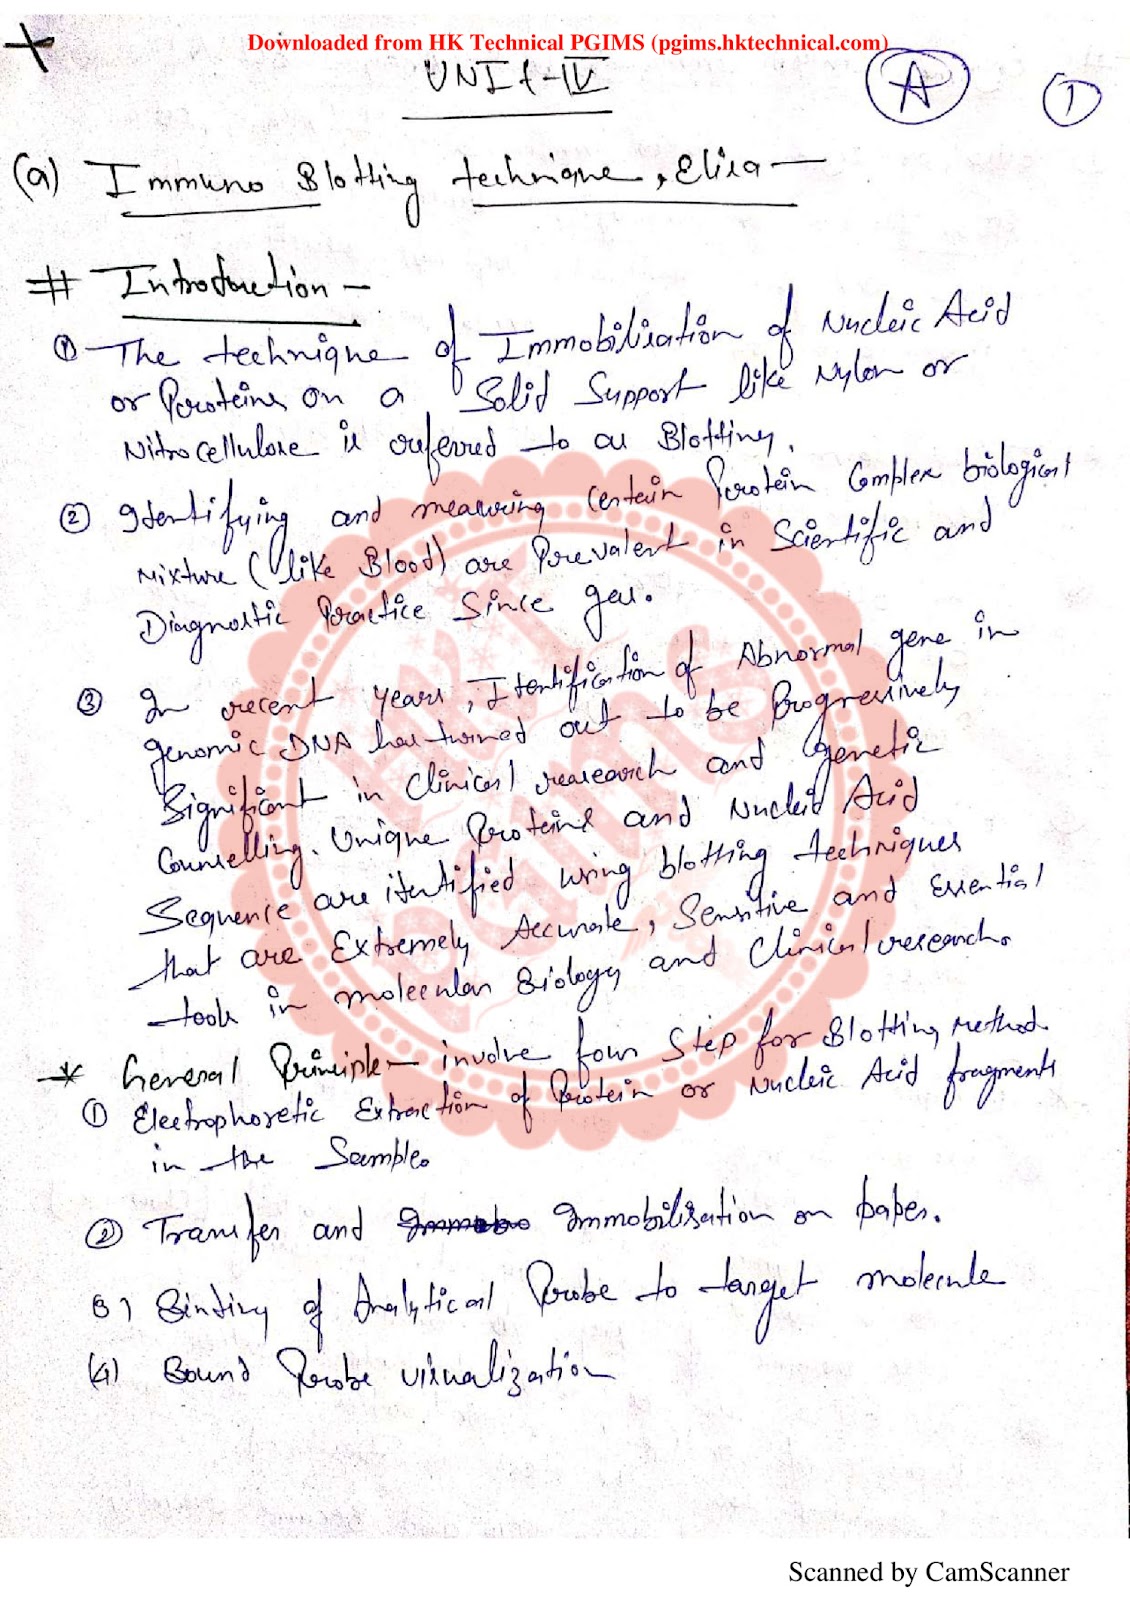 Downloaded from HK Technical PGIMS (pgims.hktechnical.com)
UNIT-IV
A
1
(a) Immuno Blotting technique, Elisa —
# Introduction —
① The technique of Immobilisation of Nucleic Acid
or Proteins on a Solid Support like Nylon or
Nitrocellulose is referred to as Blotting.
② Identifying and measuring certain Protein Complex biological
Mixture (like Blood) are Prevalent in Scientific and
Diagnostic Practice Since
③ In recent years, Identification of Abnormal gene in
genomic DNA has turned out to be Progressively
Significant in Clinical research and genetic
Counselling. Unique Proteins and Nucleid Acid
Sequence are identified using blotting techniques
that are Extremely Accurate, Sensitive and Essential
tools in molecular Biology and Clinical research.
* General Principle — involve four Step for Blotting Method.
① Electrophoretic Extraction of Protein or Nucleic Acid fragments
in the Sample.
② Transfer and Immobilisation on paper.
3) Binding of Analytical Probe to target molecule
(4) Bound Probe visualization
HK
PGIMS
Scanned by CamScanner